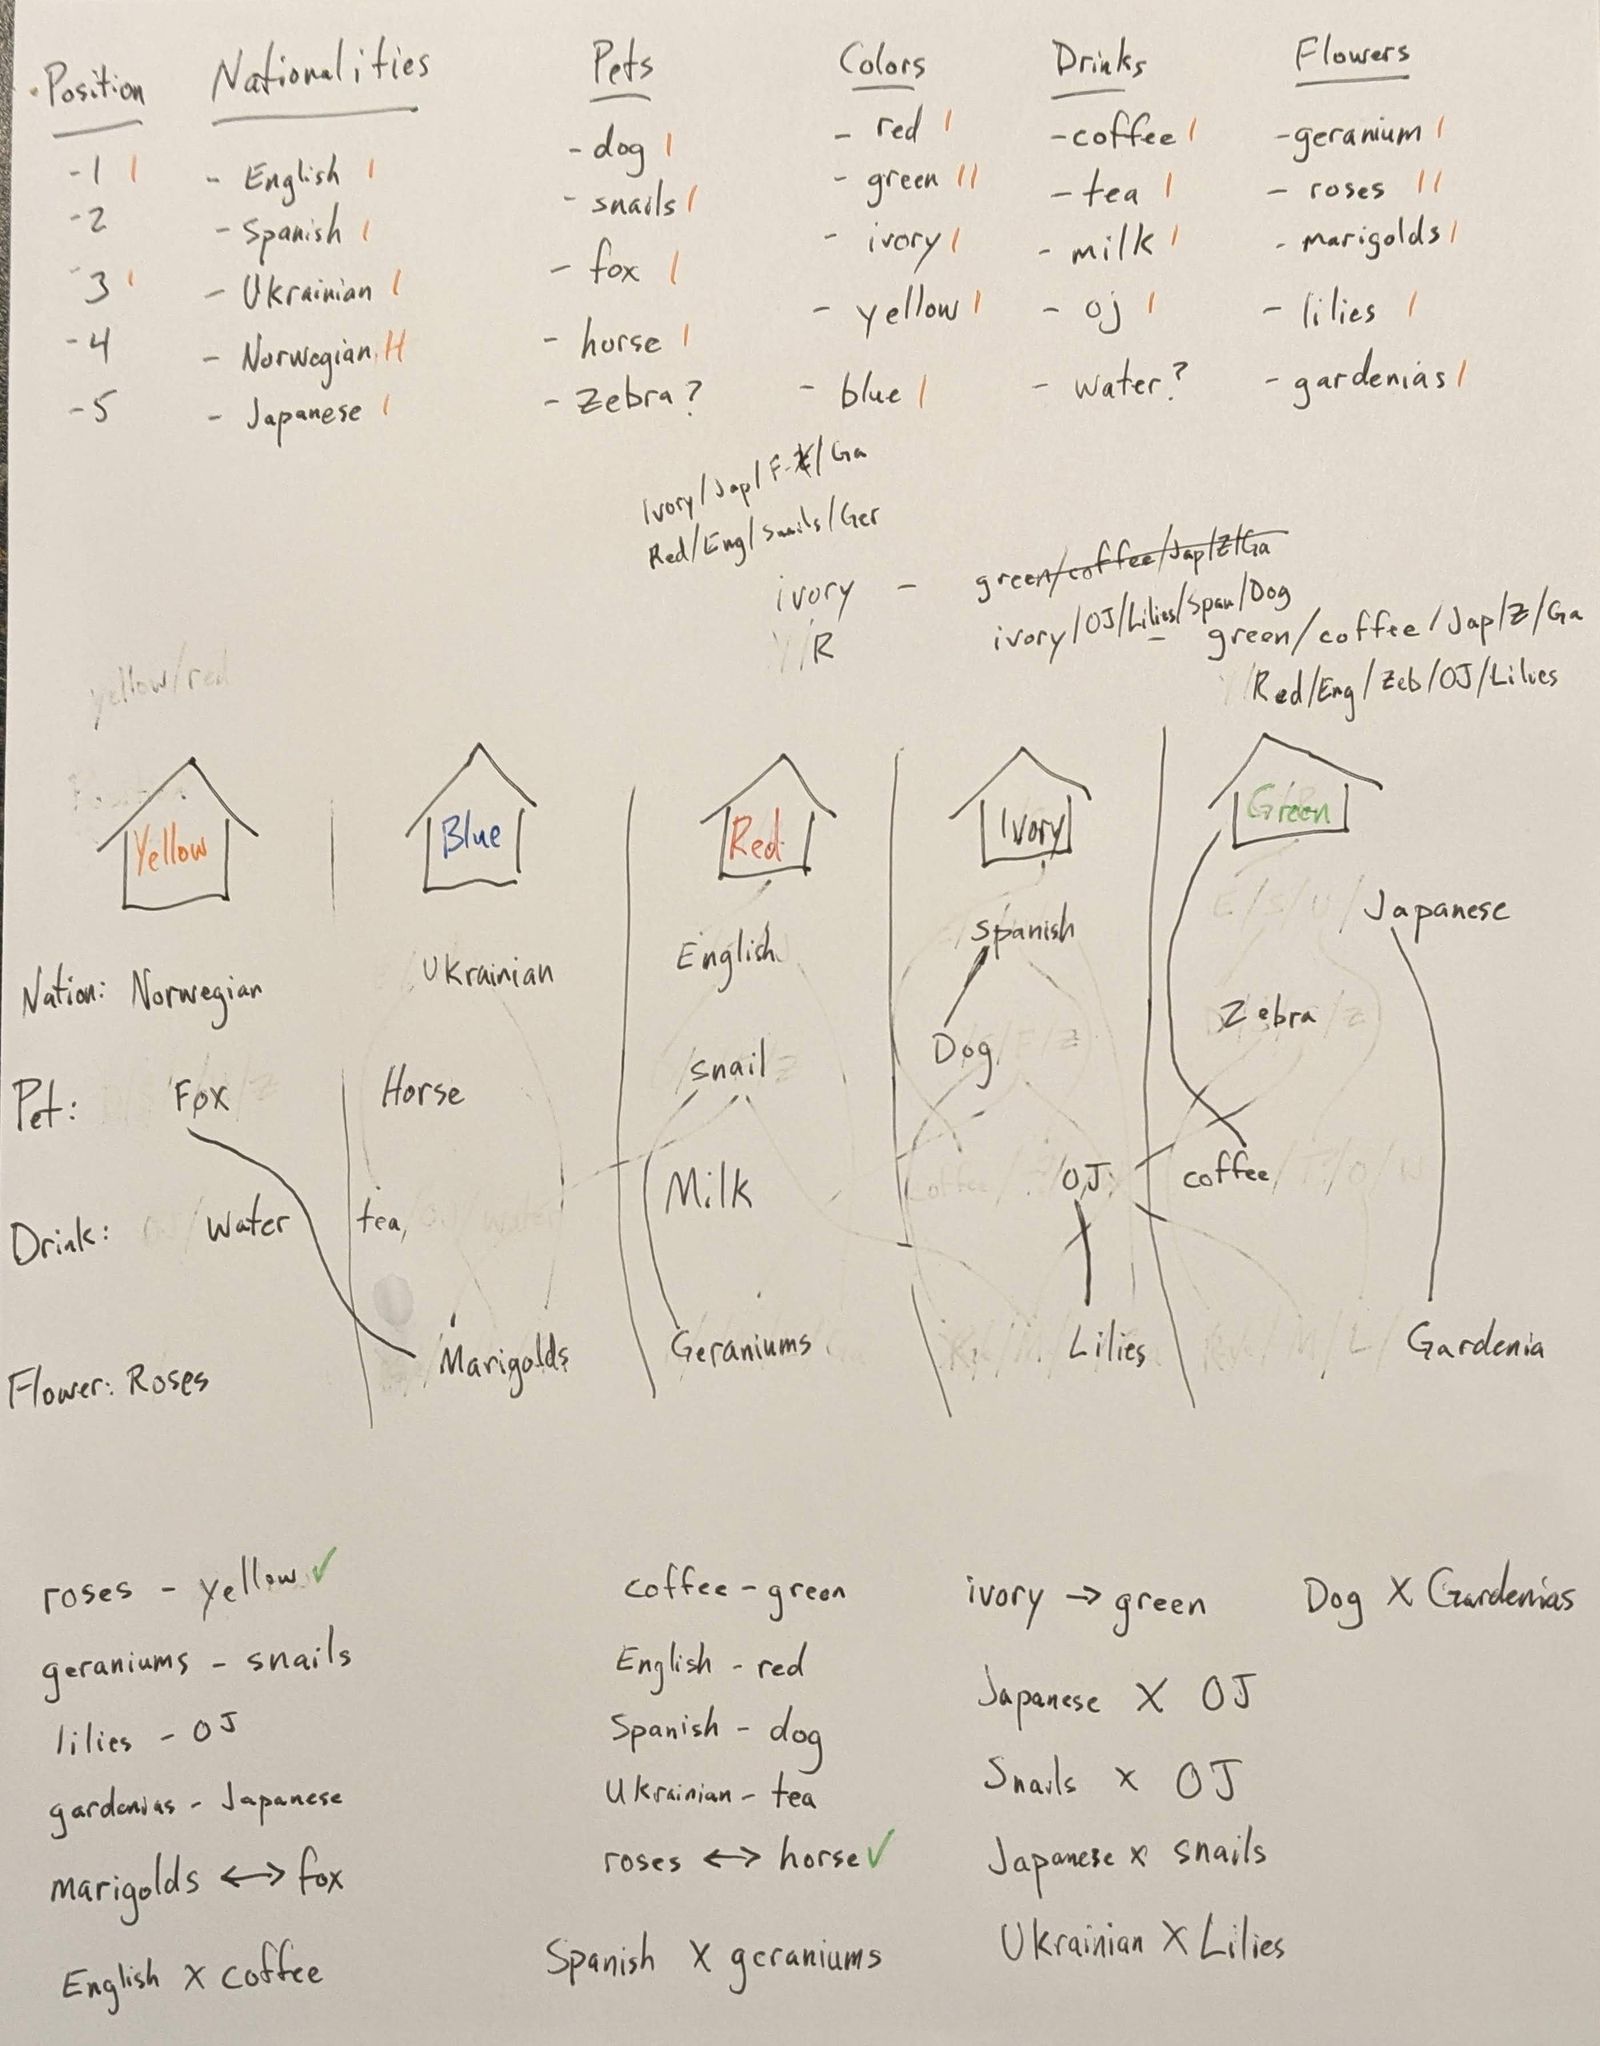 Position Nationalities Pets Colors Drinks Flowers
-1 - English -dog - red -coffee -geranium
-2 - Spanish - snails - green - tea - roses
-3 - Ukrainian - fox - ivory - milk - marigolds
-4 - Norwegian - horse - yellow - oj - lilies
-5 - Japanese - Zebra? - blue - water? - gardenias
Ivory/Jap/F-Z/Ga
Red/Eng/Snails/Ger
ivory - green/coffee/Jap/Z/Ga
Y/R ivory/OJ/Lilies/Span/Dog
green/coffee/Jap/Z/Ga
Red/Eng/Zeb/OJ/Lilies
yellow/red
Yellow Blue Red Ivory Green
Nation: Norwegian Ukrainian English Spanish Japanese
Pet: Fox Horse Snail Dog Zebra
Drink: Water tea, Milk OJ coffee
Flower: Roses Marigolds Geraniums Lilies Gardenia
roses - yellow ✓ coffee - green ivory → green Dog X Gardenias
geraniums - snails English - red Japanese X OJ
lilies - OJ Spanish - dog Snails x OJ
gardenias - Japanese Ukrainian - tea Japanese x snails
marigolds ↔ fox roses ↔ horse ✓ Ukrainian X Lilies
English X coffee Spanish X geraniums